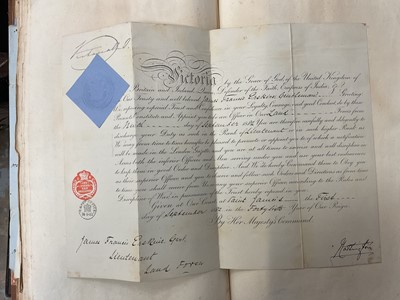 Victoria R.I.
Victoria by the Grace of God, of the United Kingdom of
Britain and Ireland, Queen, Defender of the Faith, Empress of India, &c
To Our Trusty and well beloved James Francis Erskine Gentleman Greeting
We reposing especial Trust and Confidence in your Loyalty, Courage, and good Conduct, do by these
Presents Constitute and Appoint you to be an Officer in Our Land Forces from
the day of 1882 You are therefore carefully and diligently to
discharge your Duty as such in the Rank of Lieutenant or in such higher Rank as
We may from time to time hereafter be pleased to promote or appoint you to of which a notification
will be made in the London Gazette, and you are at all times to exercise and well discipline in
Arms both the inferior Officers and Men serving under you and use your best endeavours
to keep them in good Order and Discipline. And We do hereby Command them to Obey
you as their superior Officer and you to observe and follow such Orders and Directions as from time
to time you shall receive from Us or any your superior Officer according to the Rules and
Discipline of War in pursuance of the Trust hereby reposed in you
Given at Our Court at Saint James's the First
day of September 1882 in the Forty Sixth Year of Our Reign
By Her Majesty's Command
James Francis Erskine, Gent.
Lieutenant
Land Forces
Hartington